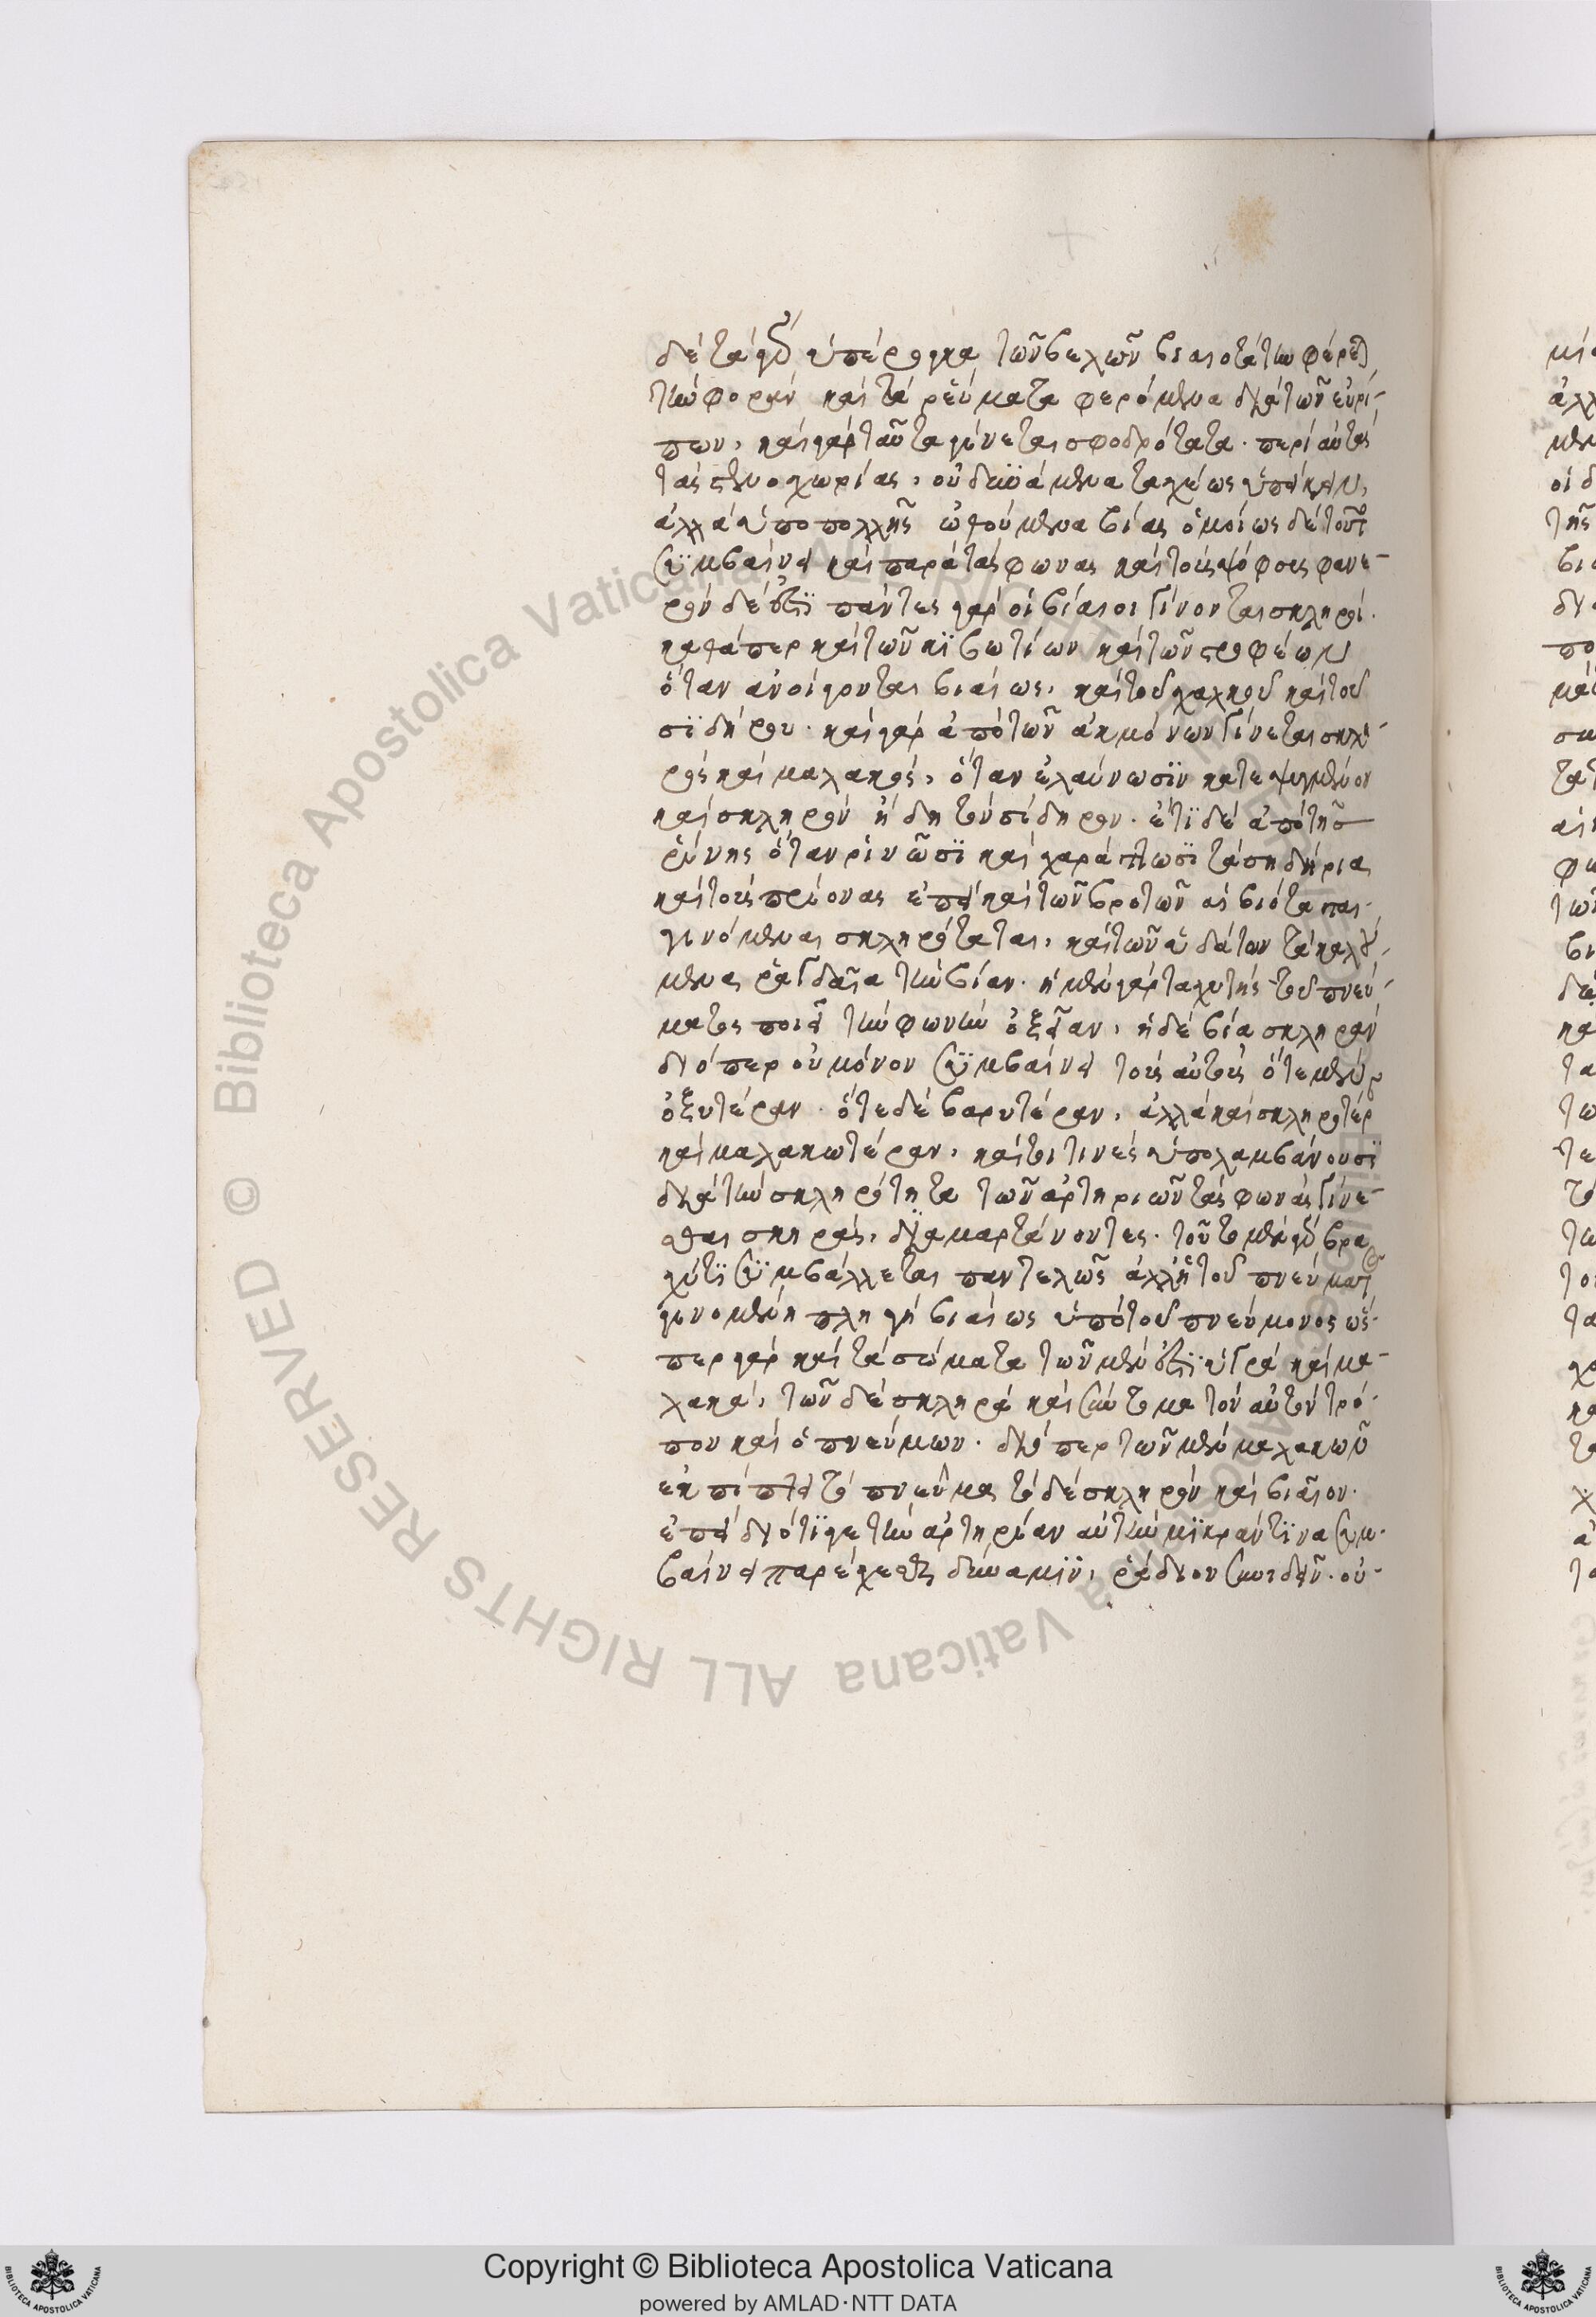 δὲ τὰ γὰρ ὑπέρογκα τῶν βελῶν βιαιοτάτην φέρεται
τὴν φορὰν καὶ τὰ ῥεύματα φερόμενα διὰ τῶν εὐρί-
πων, καὶ γὰρ ταῦτα γίνεται σφοδρότατα· περὶ αὐτὰς
τὰς στενοχωρίας, οὐ δυνάμενα ταχέως ὑπείκειν,
ἀλλὰ ὑπὸ πολλῆς ὠθούμενα βίας ὁμοίως δὲ τοῦτο
συμβαίνει καὶ παρὰ τὰς φωνας καὶ τοὺς ψόφους φανε-
ρὸν δέ ἐστι πάντες γὰρ οἱ βίαιοι γίνονται σκληροὶ.
καθάπερ καὶ τῶν κϊβωτίων καὶ τῶν στροφέων
ὅταν ἀνοίγονται βιαίως, καὶ τοῦ χαλκοῦ καὶ τοῦ
σϊδήρου· καὶ γὰρ ἀπὸ τῶν ἀκμόνων γίνεται σκλη-
ρὸς καὶ μαλακὸς, ὅταν ἐλαύνωσϊν κατεψυγμένον
καὶ σκληρὸν ἤδη τὸν σίδηρον· ἔτϊ δὲ ἀπὸ τῆς
ῥίνης ὅταν ῥινῶσϊ καὶ χαράττωσϊ τὰ σηδήρια
καὶ τοὺς πρίονας ἐπεὶ καὶ τῶν βροτῶν αἱ βιόταται
γινόμεναι σκληρόταται, καὶ τῶν ὑδάτων τὰ καλού-
μενα ῥαγδαῖα τὴν βίαν· ἡ μὲν γὰρ ταχυτὴς τοῦ πνεύ-
ματος ποιεῖ τὴν φωνὴν ὀξεῖαν, ἡ δὲ βία σκληρὰν
διόπερ οὐ μόνον συμβαίνει τοὺς αὐτοὺς ὁτὲ μὲν
ὀξυτέραν· ὁτὲ δὲ βαρυτέραν, ἀλλὰ καὶ σκληροτέρ
καὶ μαλακωτέραν, καὶ τοι τινὲς ὑπολαμβάνουσϊ
διὰ τὴν σκληρότητα τῶν ἀρτηριῶν τὰς φωνὰς γίνε-
σθαι σκηρὰς, διαμαρτάνοντες· τοῦτο μὲν γὰρ βρα
χύ τϊ συμβάλλεται παντελῶς ἀλλ' ἡ τοῦ πνεύματος
γινομένη πληγὴ βιαίως ὑπὸ τοῦ πνεύμονος ὥς-
περ γὰρ καὶ τὰ σώματα τῶν μὲν ἐστϊ ὑγρὰ καὶ μα-
λακὰ, τῶν δὲ σκληρὰ καὶ σύντομα τὸν αὐτὸν τρό-
πον καὶ ὁ πνεύμων· διόπερ τῶν μὲν μαλακῶν
ἐκπίπτει τὸ πνεῦμα τὸ δὲ σκληρὸν καὶ βιαῖον·
ἐπεὶ διότϊ γε τὴν ἀρτηρίαν αὐτὴν μϊκράν τϊνα συμ-
βαίνει παρέχεσθαι δύναμϊν, ῥάδιον συνιδεῖν· οὐ-
Copyright © Biblioteca Apostolica Vaticana
powered by AMLAD·NTT DATA